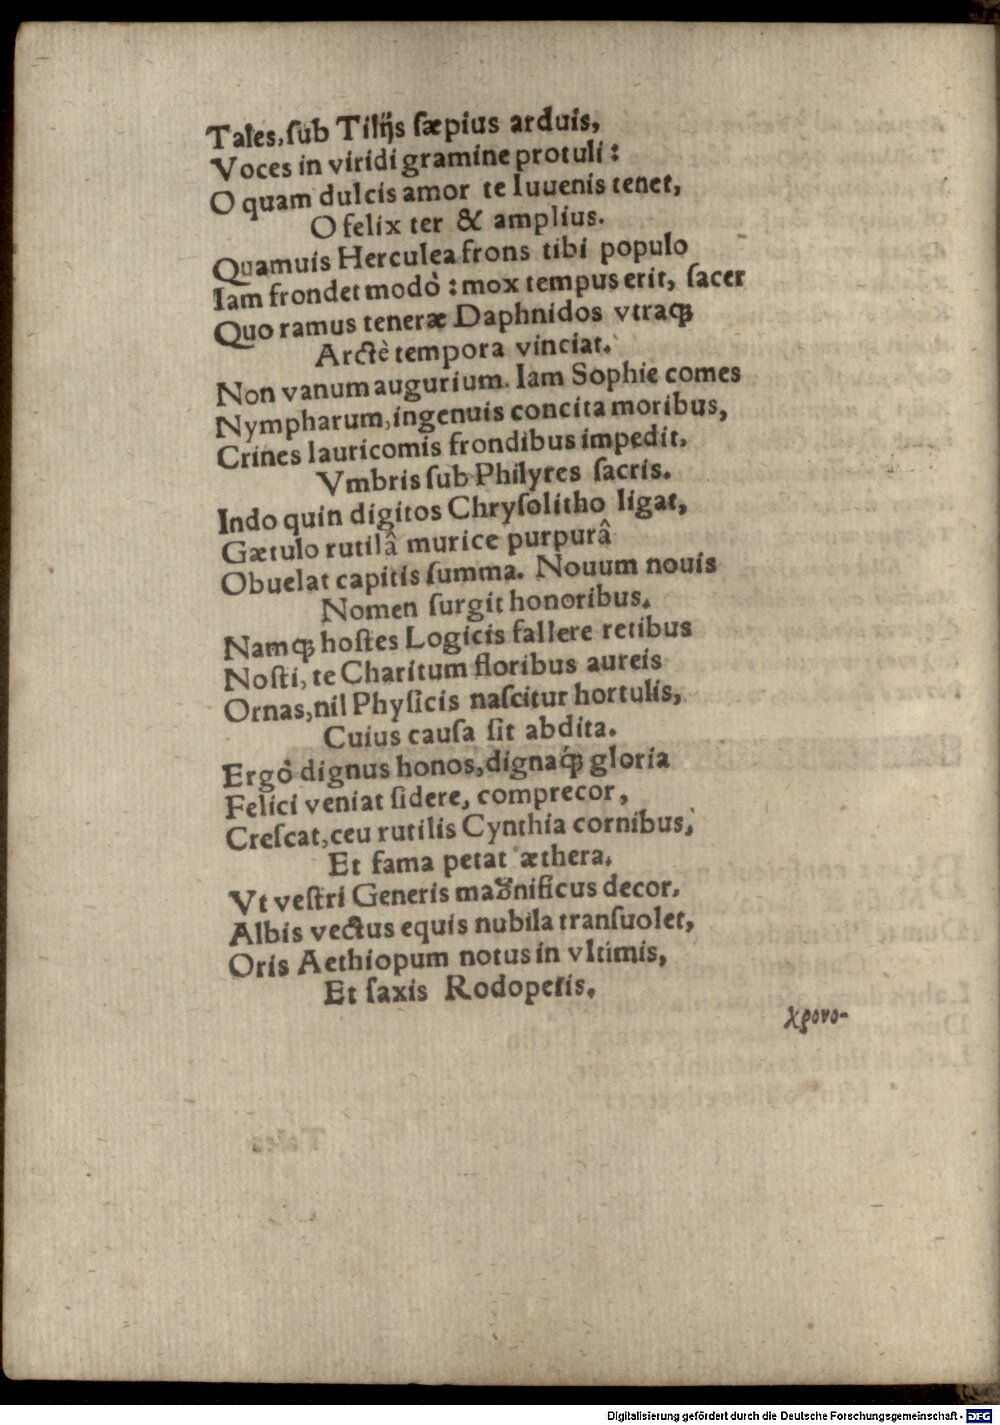 Tales, ſub Tilijs ſæpius arduis,
Voces in viridi gramine protuli:
O quam dulcis amor te Iuuenis tenet,
O felix ter & amplius.
Quamuis Herculea frons tibi populo
Iam frondet modò: mox tempus erit, ſacer
Quo ramus teneræ Daphnidos vtraqꝫ
Arctè tempora vinciat.
Non vanum augurium. Iam Sophie comes
Nympharum, ingenuis concita moribus,
Crines lauricomis frondibus impedit.
Vmbris ſub Philyres ſacris.
Indo quin digitos Chryſolitho ligat,
Gætulo rutilâ murice purpurâ
Obuelat capitis ſumma. Nouum nouis
Nomen ſurgit honoribus.
Namqꝫ hoſtes Logicis fallere retibus
Noſti, te Charitum floribus aureis
Ornas, nil Phyſicis naſcitur hortulis,
Cuius cauſa ſit abdita.
Ergò dignus honos, dignaqꝫ́ gloria
Felici veniat ſidere, comprecor,
Creſcat, ceu rutilis Cynthia cornibus,
Et fama petat æthera.
Vt veſtri Generis magnificus decor,
Albis vectus equis nubila tranſuolet,
Oris Aethiopum notus in vltimis,
Et ſaxis Rodopeiis.
χρονο-
Digitalisierung gefördert durch die Deutsche Forschungsgemeinschaft - DFG